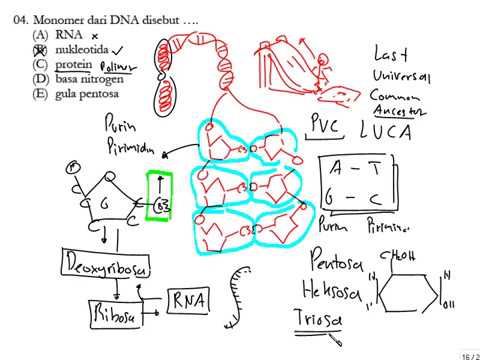 04. Monomer dari DNA disebut ….
(A) RNA ×
(B) nukleotida ✓
(C) protein Polimer
(D) basa nitrogen
(E) gula pentosa
Last
Universal
Common
Ancestor
PVC LUCA
Purin
Pirimidin
A – T
G – C
Purin
P
C
C
G
C
C
Deoxyribosa
Ribosa
RNA
Pentosa
Heksosa
Triosa
CH₂OH
H
H
OH
16 / 2